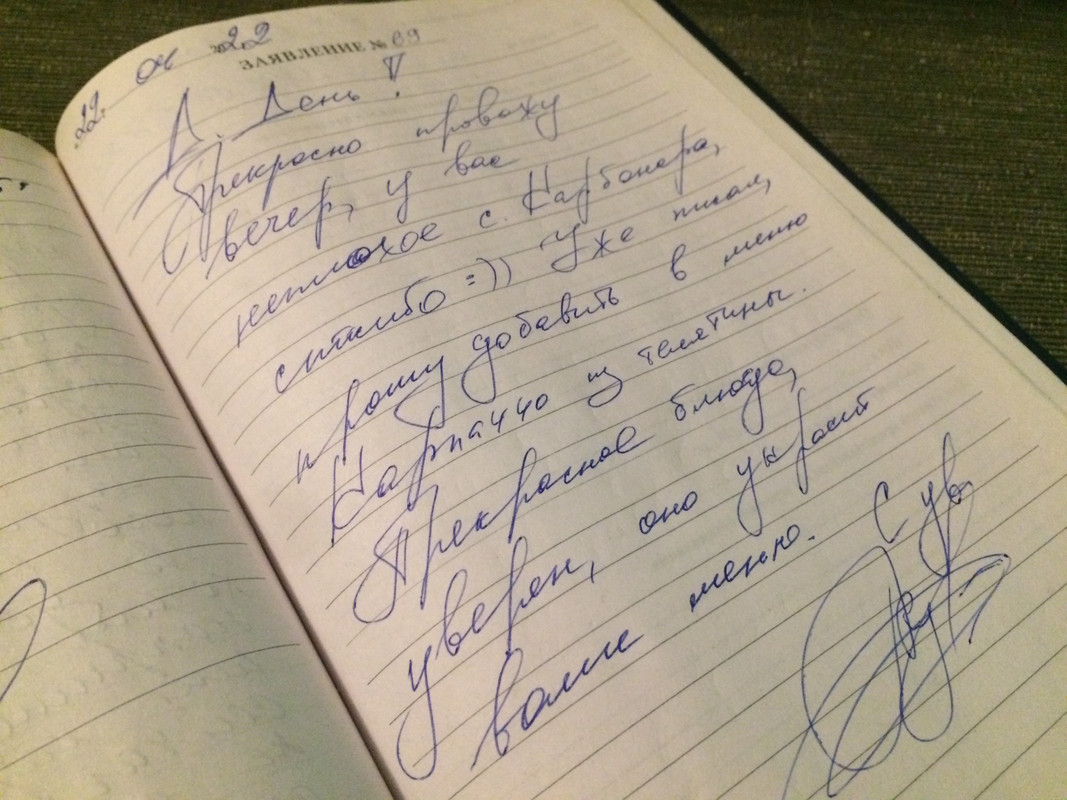 22 04 22
ЗАЯВЛЕНИЕ № 69
Д. День!
Прекрасно провожу
вечер, у вас
неплохое с. Карбонара,
спасибо :)) Уже писал,
прошу добавить в меню
Карпаччо из телятины.
Прекрасное блюдо,
уверен, оно украсит
ваше меню. С ув